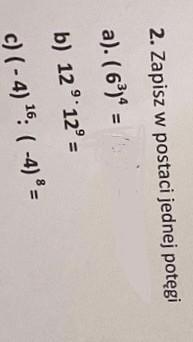 2. Zapisz w postaci jednej potęgi
a). ( 6³)⁴ =
b) 12 ⁹ · 12⁹ =
c) ( - 4) ¹⁶ : ( -4) ⁸ =